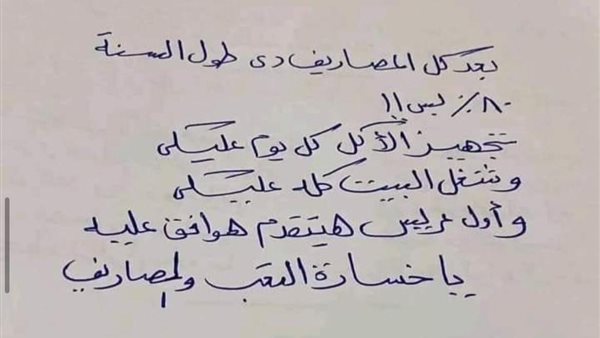 بعد كل المصاريف دى طول السنة
٨٠٪ بس !!
تجهيز الأكل كل يوم عليكى
وشغل البيت كله عليكى
وأول عريس هيتقدم هوافق عليه
يا خسارة التعب والمصاريف